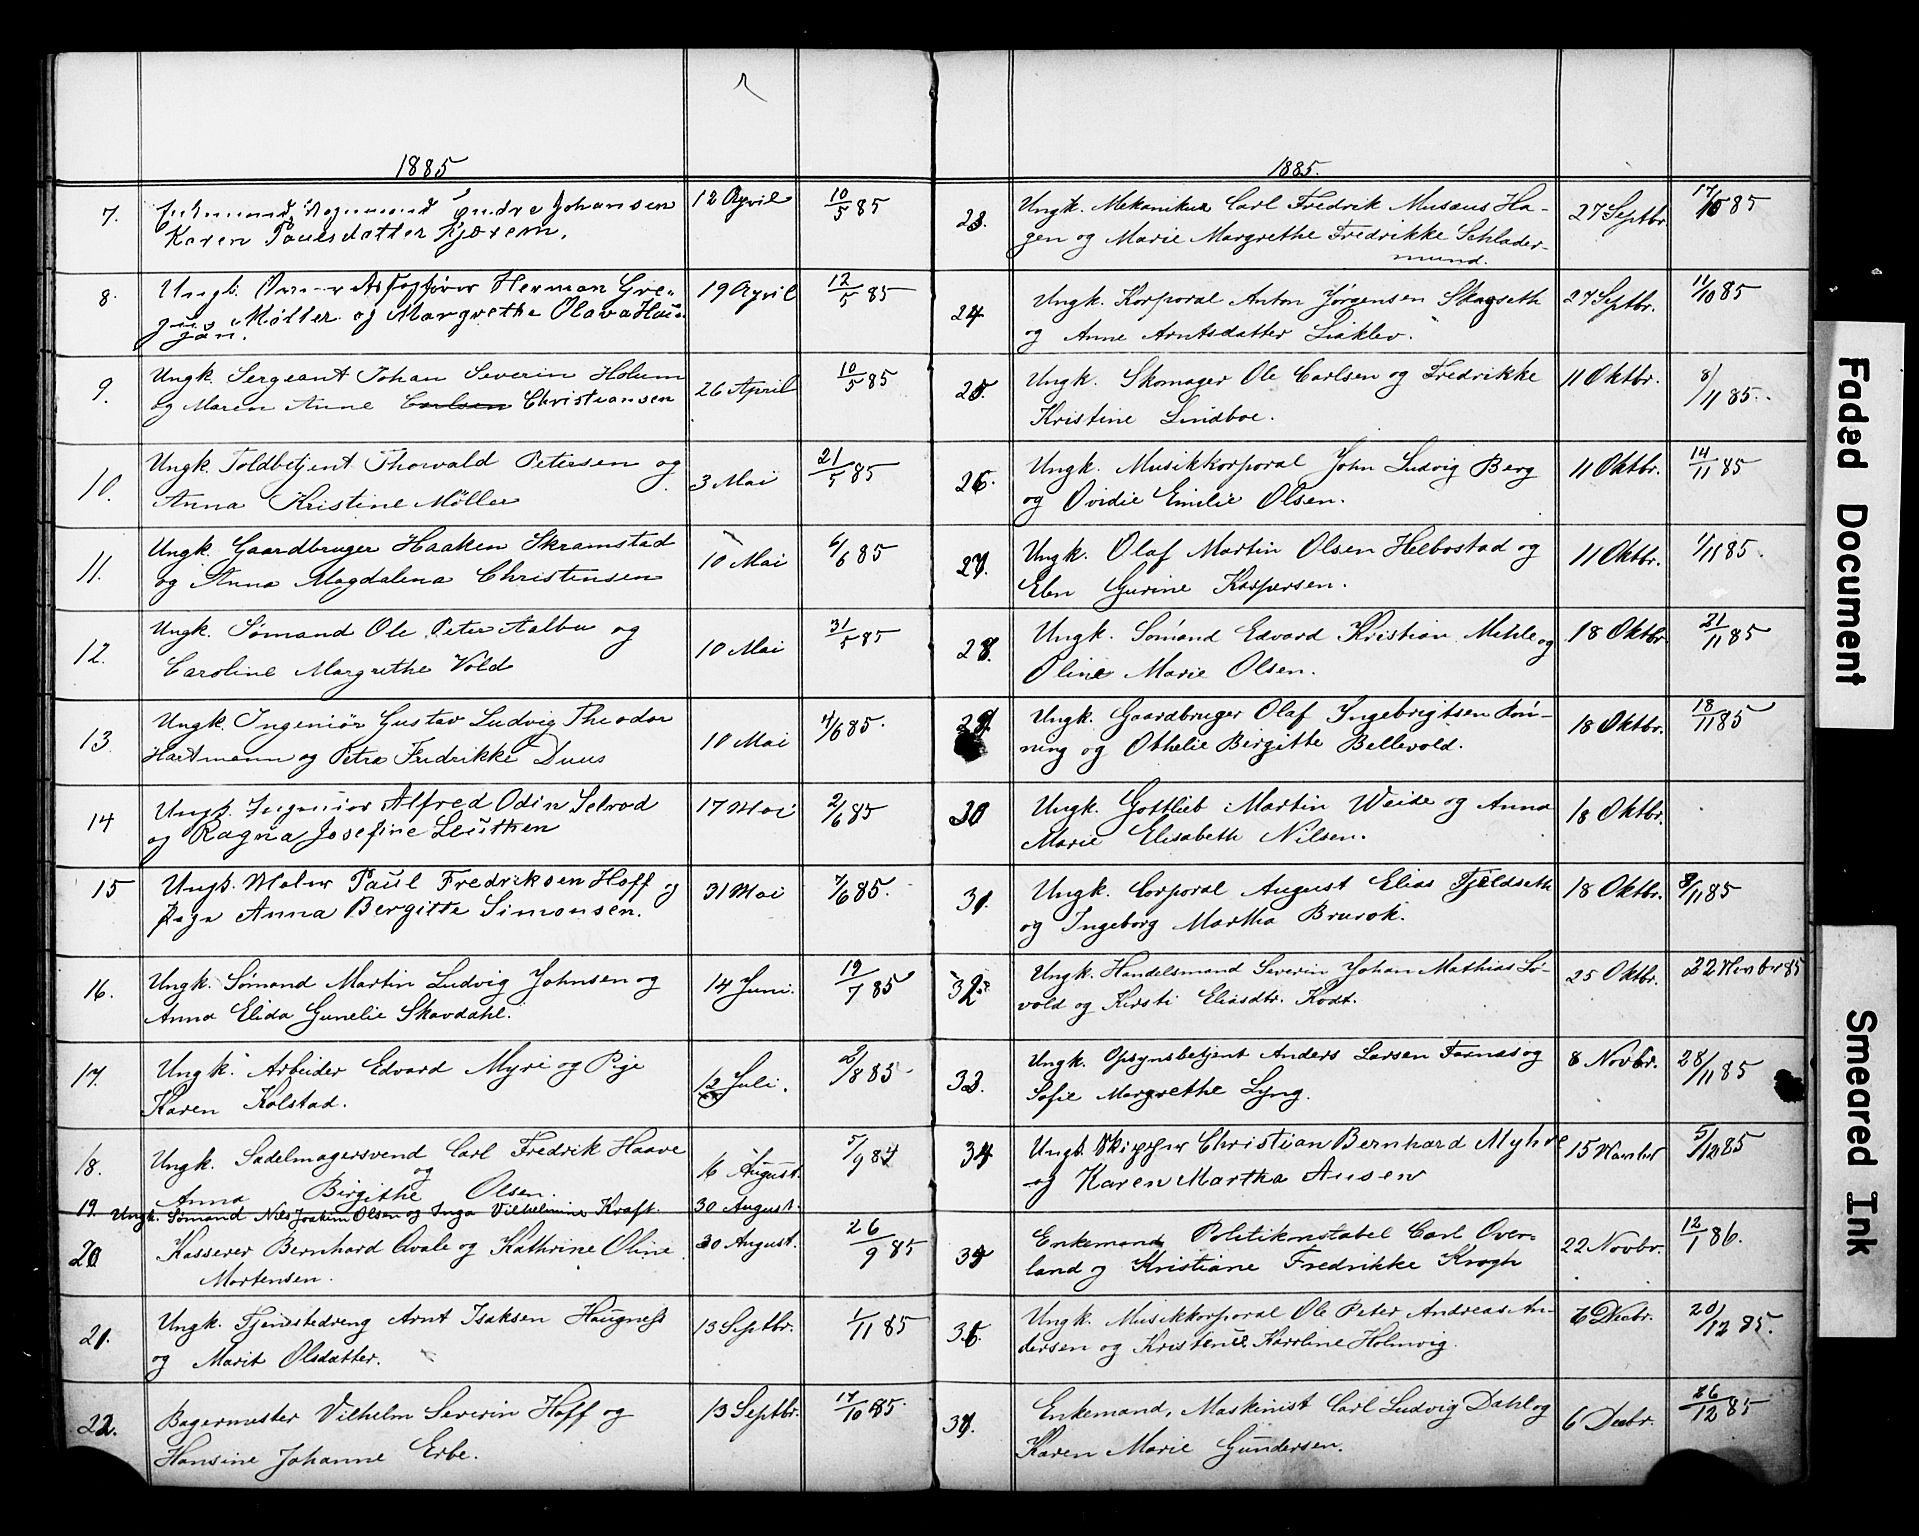 1885
7. Enkemand Endre Johansen 12 April 10/5 85
Karen Paulsdatter Kjørem.
8. Ungk. Herman Gre- 19 April 12/5 85
Møller og Margrethe Olava
9. Ungk. Sergeant Johan Severin Holum 26 April 10/5 85
og Maren Anne Carlsen Christiansen
10. Ungk. Toldbetjent Thorvald Petersen og 3 Mai 21/5 85
Anna Kristine Møller
11. Ungk. Gaardbruger Haaken Skramstad 10 Mai 6/6 85
og Anna Magdalena Christensen
12. Ungk. Sømand Ole Peter Aalbu og 10 Mai 31/5 85
Caroline Margrethe Vold
13. Ungk. Ingeniør Gustav Ludvig Theodor 10 Mai 4/6 85.
Hartmann og Petra Fredrikke Duus
14 Ungk. Ingeniør Alfred Odin Selvad 17 Mai 2/6 85
og Ragna Josefine Leuthen
15 Ungk. Maler Paul Fredriksen Hoff og 31 Mai 7/6 85.
Pige Anna Bergitte Simonsen.
16. Ungk. Sømand Martin Ludvig Johnsen og 14 Juni. 19/7 85
Anna Elida Gunelie Skavdahl.
17. Ungk. Arbeider Edvard Myre og Pige 12 Juli. /8 85
Karen Kolstad.
18. Ungk. Sadelmagersvend Carl Fredrik Haave 16 August. 5/9 84
og
Anna Birgithe Olsen.
19. Ungk. Sømand Nils Joakim Olsen og Inga Vilhelmine Kraft. 30 August.
20 Kasserer Bernhard Qvale og Kathrine Oline 30 August. 26/9 85
Mortensen.
21. Ungk. Tjenestedreng Arnt Isaksen Haugness 13 Septbr. 1/11 85
og Marit Olsdatter.
22. Bagermester Vilhelm Severin Hoff og 13 Septbr. 17/10 85.
Hansine Johanne Erbe.
1885.
23. Ungk. Mekaniker Carl Fredrik Musæus Ha- 27 Septbr. 17/10 85
gen og Marie Margrethe Fredrikke Schlader-
mund.
24 Ungk. Korporal Anton Jørgensen Skogseth 27 Septbr. 11/10 85
og Anne Arntsdatter Liaklev.
25. Ungk. Skomager Ole Carlsen og Fredrikke 11 Oktbr. 8/11 85.
Kristine Lindboe.
26. Ungk. Musikkorporal John Ludvig Berg 11 Oktbr. 14/11 85
og Ovidie Emilie Olsen.
27. Ungk. Olaf Martin Olsen Helbostad og 11 Oktbr. 1/11 85.
Elen Gurine Kaspersen.
28. Ungk. Sømand Edvard Kristian Mehle og 18 Oktbr. 21/11 85
Oline Marie Olsen.
29. Ungk. Gaardbruger Olaf Ingebrigtsen Røn- 18 Oktbr. 18/11 85
ning og Othelie Birgitte Bellevold.
30 Ungk. Gottlieb Martin Weide og Anna 18 Oktbr.
Marie Elisabeth Nilsen.
31. Ungk. Corporal August Elias Fjeldseth 18 Oktbr. 8/11 85
og Ingeborg Martha Brurok.
32. Ungk. Handelsmand Severin Johan Mathias Lø- 25 Oktbr. 22 Novbr 85
vold og Kirsti Eliasdtr. Kodt.
33. Ungk. Opsynsbetjent Anders Larsen Farnæs og 8 Novbr. 28/11 85
Sofie Margrethe Lyng.
34 Ungk. Skipper Christian Bernhard Myhre 15 Novbr 5/12 85
og Karen Martha Ansen
35 Enkemand Politikonstabel Carl Over- 22 Novbr. 12/1 86.
land og Kristiane Fredrikke Krogh
36. Ungk. Musikkorporal Ole Peter Andreas An- 6 Decbr. 20/12 85.
dersen og Kristence Karoline Holmvig.
37. Enkemand, Maskinist Carl Ludvig Dahl og 6 Decbr. 26/12 85
Karen Marie Gundersen.
Faded Document
Smeared Ink